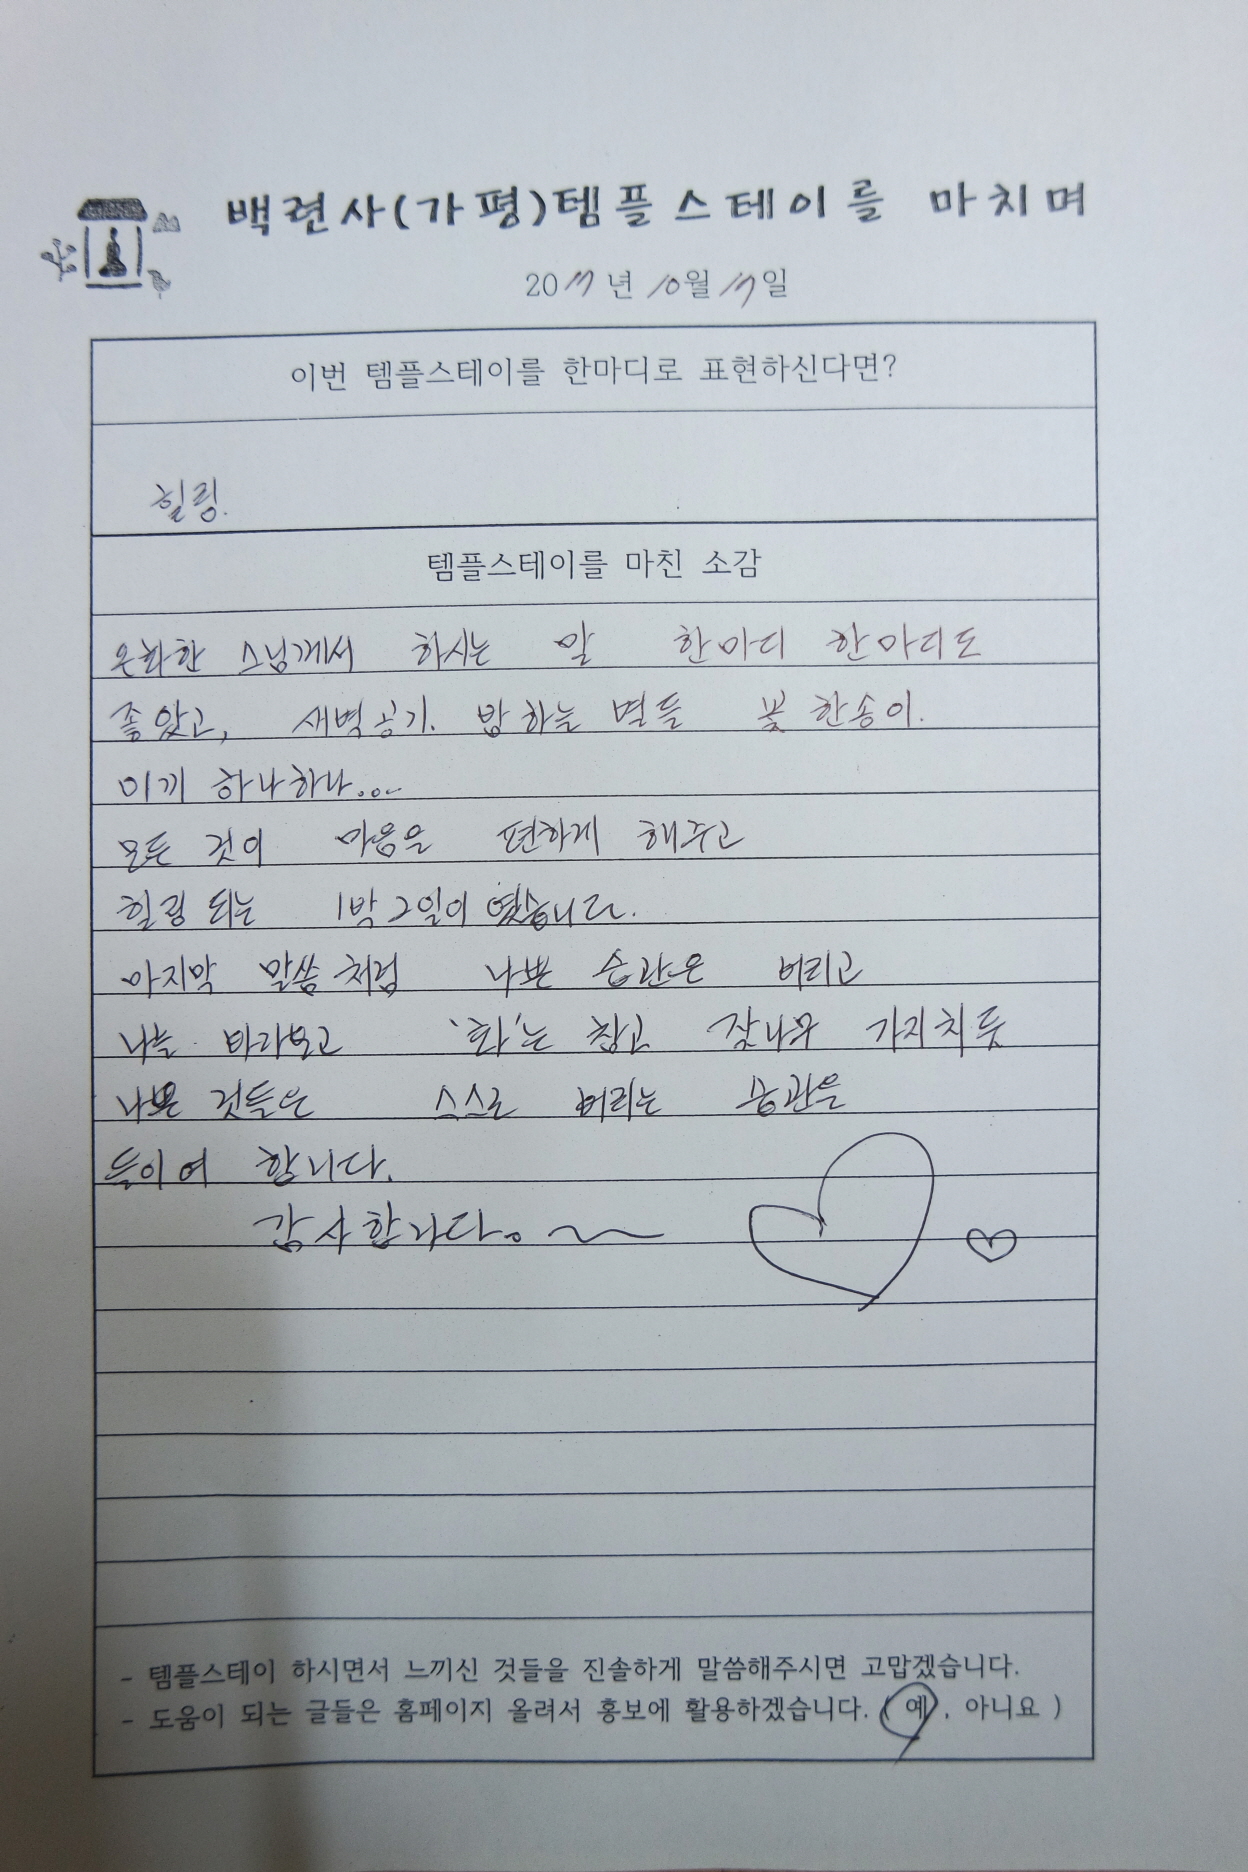 백련사(가평)템플스테이를 마치며
2017년 10월 17일
이번 템플스테이를 한마디로 표현하신다면?
힐링.
템플스테이를 마친 소감
온화한 스님께서 하시는 말 한마디 한마디도
좋았고, 새벽공기. 밤하는 별들 꽃 한송이.
이끼 하나하나...
모든 것이 마음을 편하게 해주고
힐링 되는 1박 2일이 였습니다.
마지막 말씀 처럼 나쁜 습관은 버리고
나를 바라보고 '화'는 참고 잣나무 가지치듯
나쁜 것들은 스스로 버리는 습관을
들이여 합니다.
감사합니다. ~
- 템플스테이 하시면서 느끼신 것들을 진솔하게 말씀해주시면 고맙겠습니다.
- 도움이 되는 글들은 홈페이지 올려서 홍보에 활용하겠습니다. ( 예 , 아니요 )